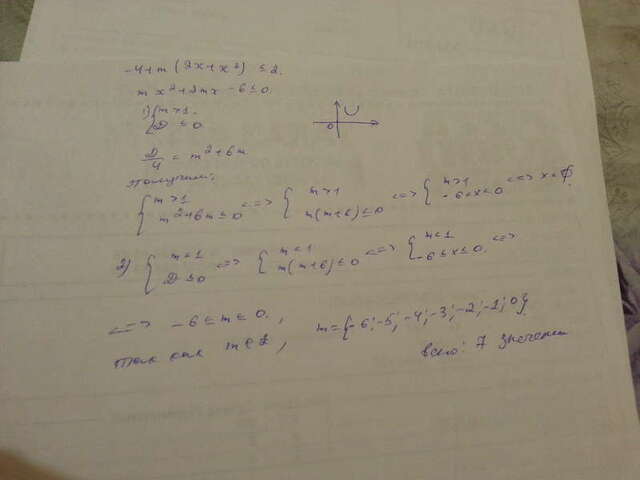 -4+m (2x+x²) ≤ 2.
mx²+2mx-6≤0.
1) { m>1. D ≤ 0
0
D/4 = m²+6m.
Получим:
{ m>1 m²+6m≤0 <=> { m>1 m(m+6)≤0 <=> { m>1 -6<x<0 <=> x=∅.
2) { m<1 D≤0 <=> { m<1 m(m+6)≤0 <=> { m<1 -6≤x≤0. <=>
<=> -6≤m≤0.,
Так как m∈Z, m={-6;-5;-4;-3;-2;-1;0}
всего: 7 значений